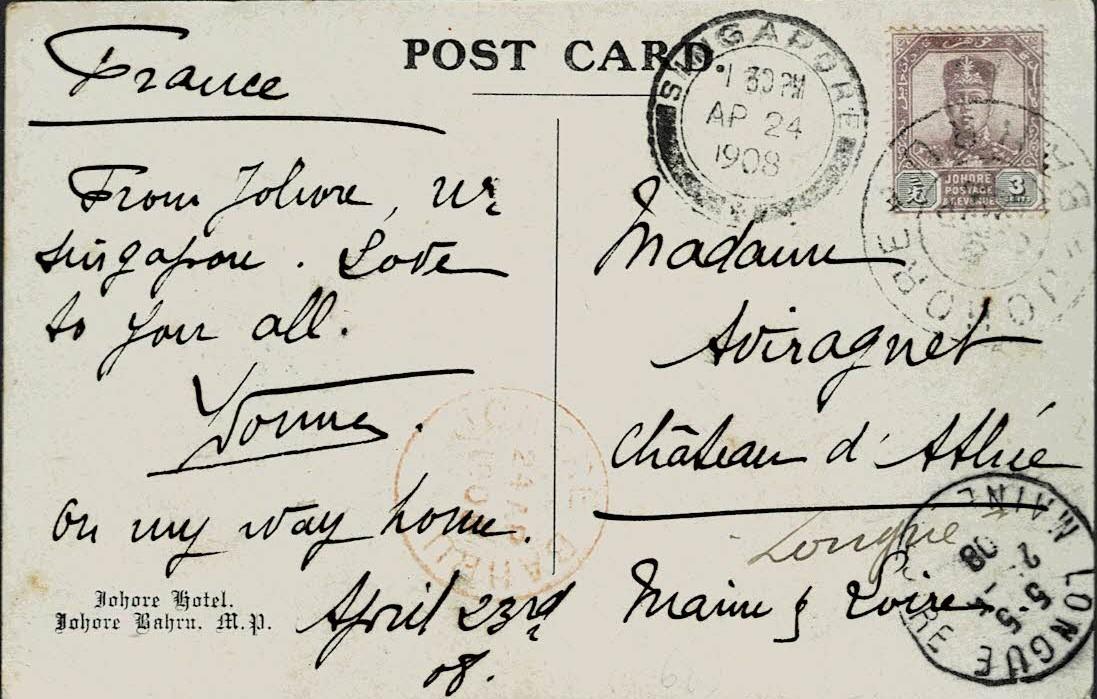 POST CARD
France
From Johore, Nr
Singapore. Love
to you all.
Yvonne.
on my way home.
April 23rd
08.
Johore Hotel.
Johore Bahru. M.P.
SINGAPORE
1 30 PM
AP 24
1908
JOHORE
POSTAGE
& REVENUE
3
JOHORE BAHRU
Madame
Aviragnet
Château d'Athée
Longué
Maine & Loire
JOHORE BAHRU
24 AP
LONGUE
25-5
08
MAINE
LOIRE